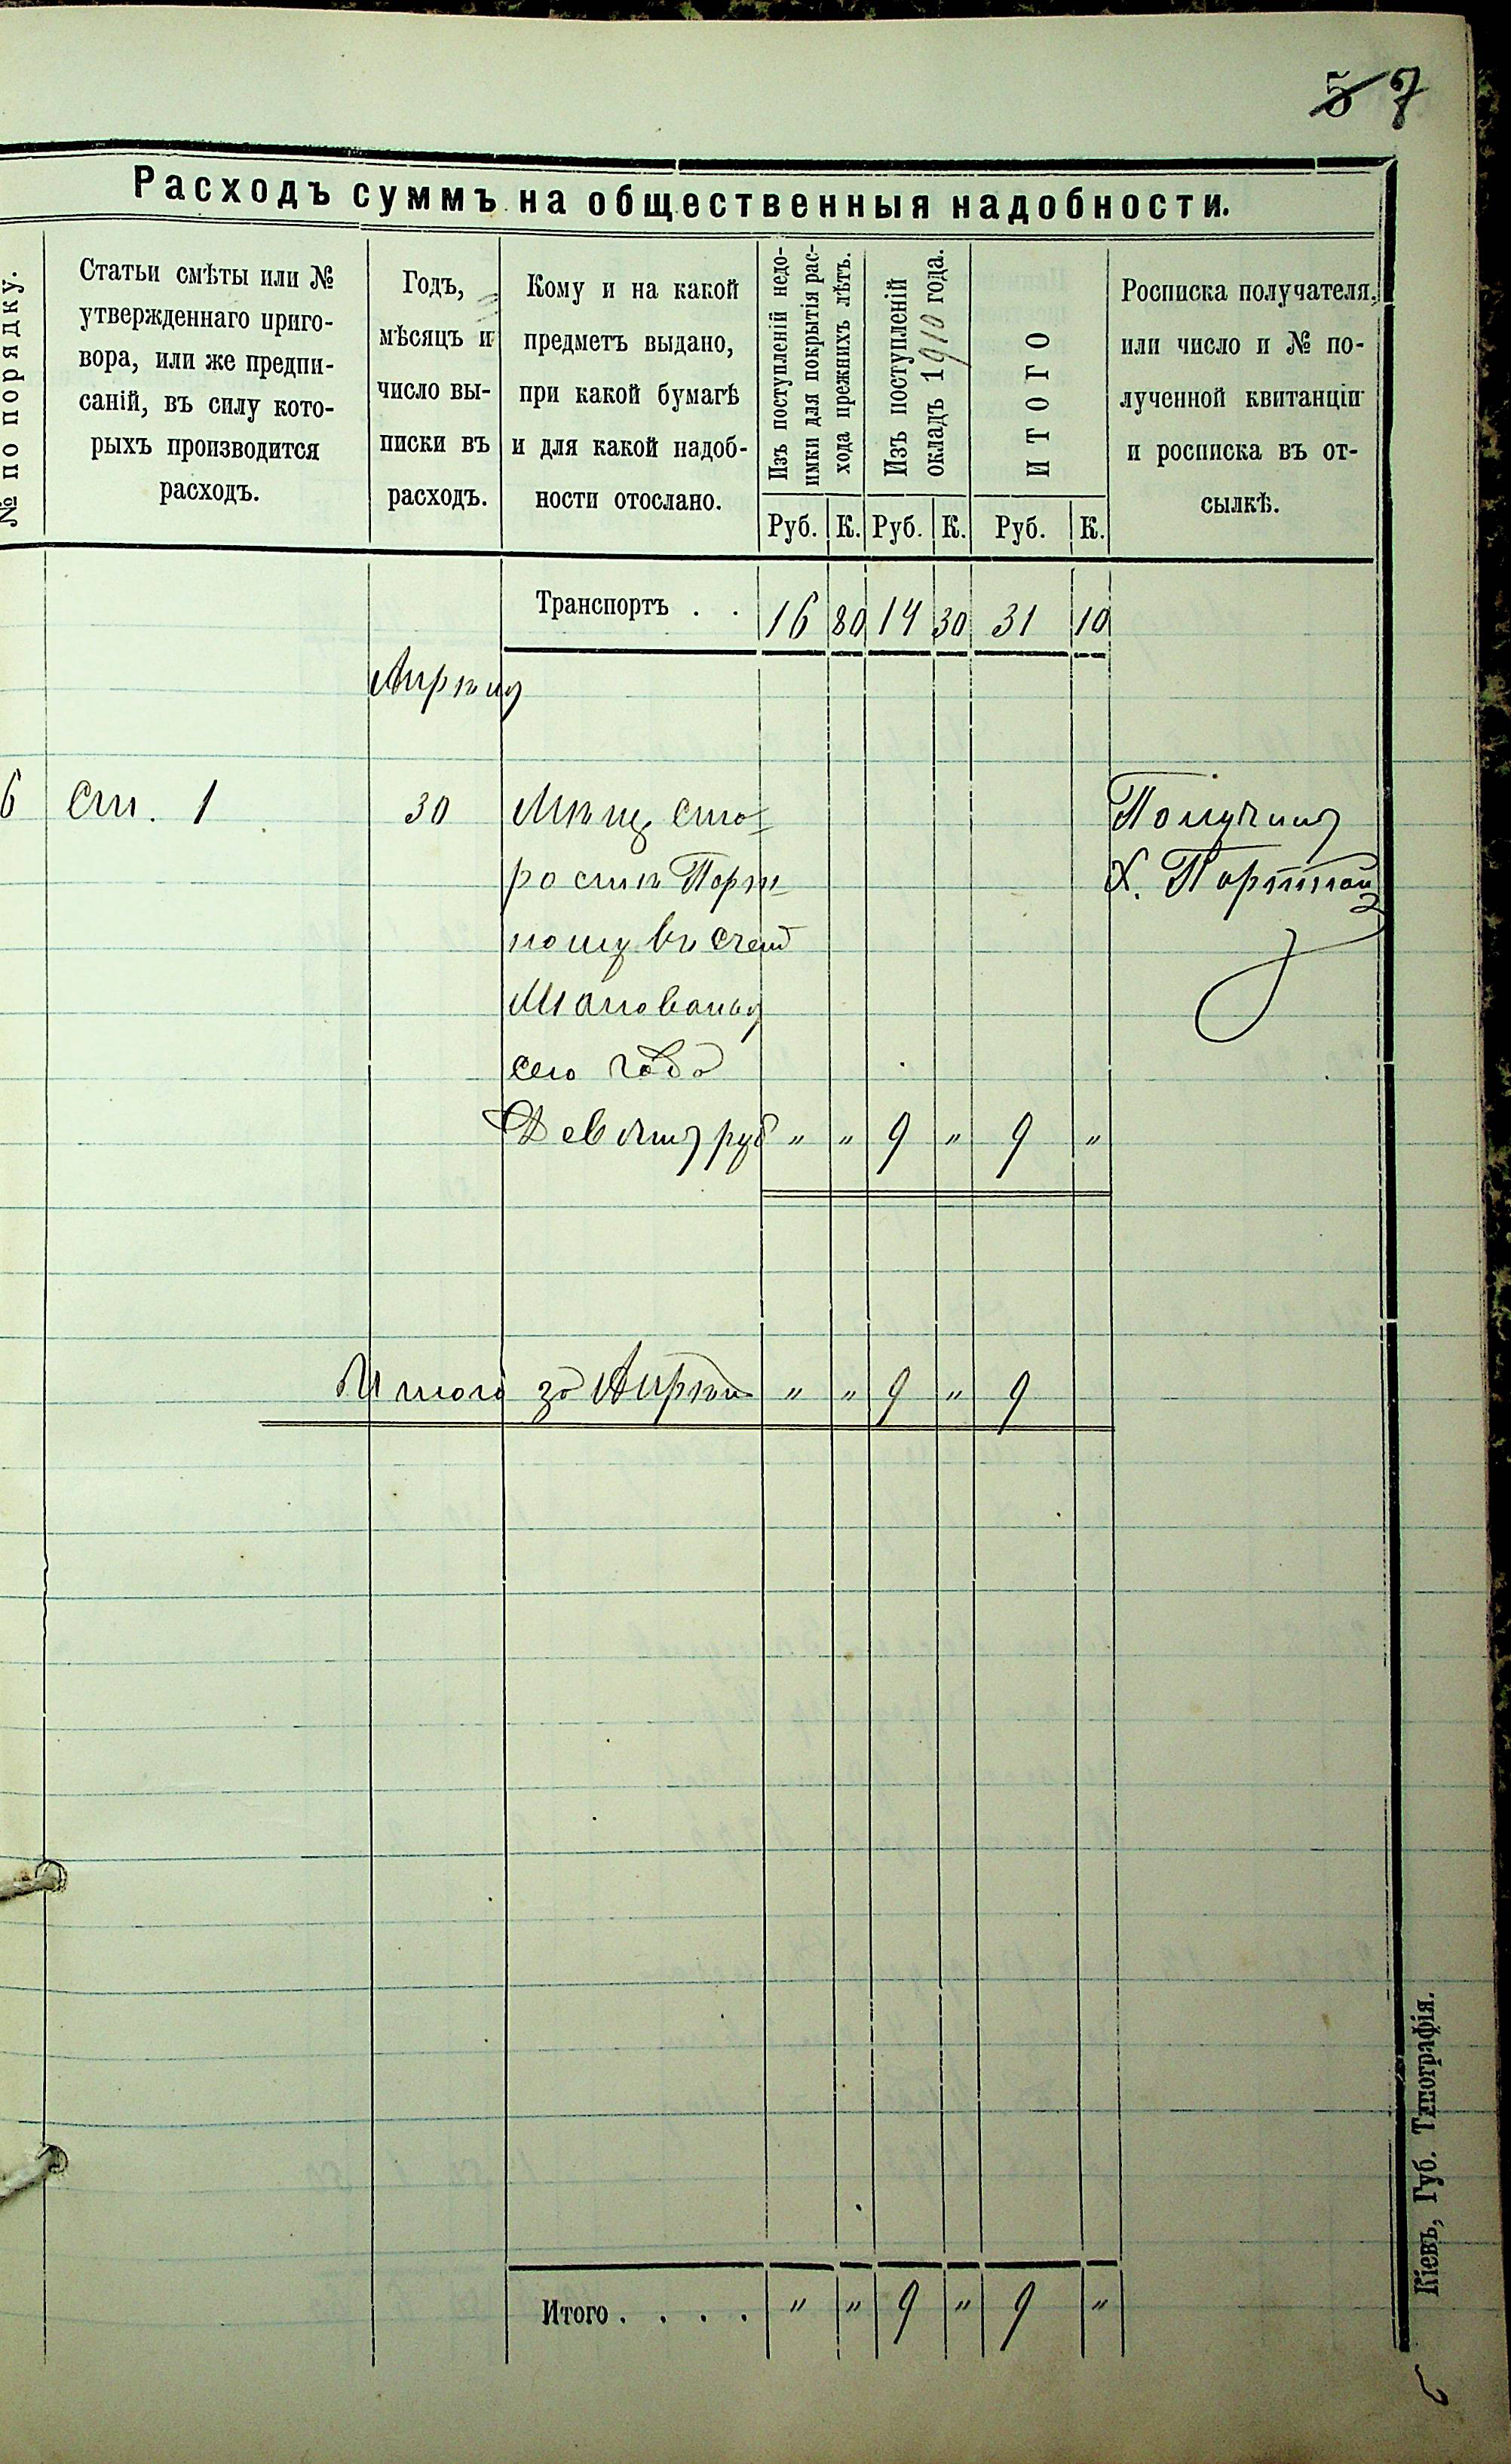 5 7
Расходъ суммъ на общественныя надобности.
№ по порядку.
Статьи смѣты или №
утвержденнаго приго-
вора, или же предпи-
саній, въ силу кото-
рыхъ производится
расходъ.
Годъ,
мѣсяцъ и
число вы-
писки въ
расходъ.
Кому и на какой
предметъ выдано,
при какой бумагѣ
и для какой надоб-
ности отослано.
Изъ поступленій недо-
имки для покрытія рас-
хода прежнихъ лѣтъ.
Изъ поступленій
окладъ 1910 года.
ИТОГО
Росписка получателя,
или число и № по-
лученной квитанціи
и росписка въ от-
сылкѣ.
Руб. К. Руб. К. Руб. К.
Транспортъ . . 16 80 14 30 31 10
Апрѣль
6 ст. 1 30 Мѣщ. ста- Получилъ
ростѣ Порт- Х. Портной
ному въ счетъ
Жалованья
сего года
Девять руб " " 9 " 9 "
Итого за Апрѣль " " 9 " 9
Итого . . . . " " 9 " 9 "
Кіевъ, Губ. Типографія.